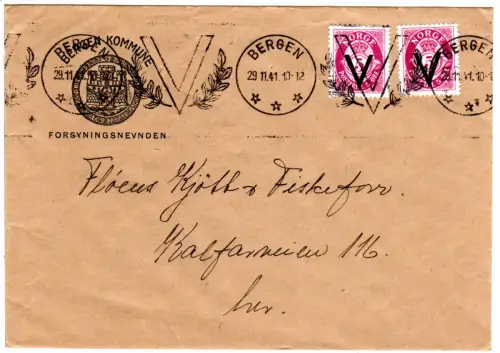 BERGEN KOMMUNE
BERGEN
29.11.41.10-12
V
BERGEN
29.11.41.10-12
NORGE
V
NORGE
V
BERGEN
29.11.41.10-12
FORSYNINGSNEVNDEN
Fløens Kjött & Fiskeforr.
Kalfarveien 116
her.